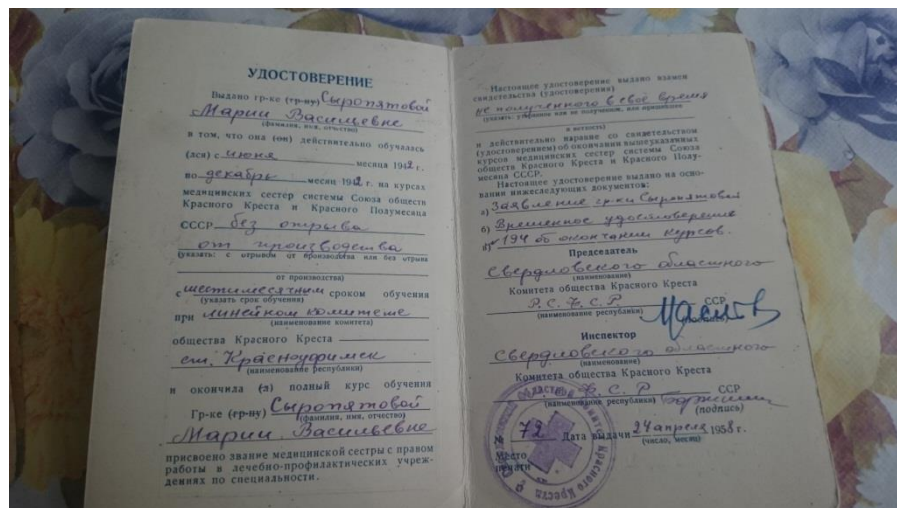 УДОСТОВЕРЕНИЕ
Выдано гр-ке (гр-ну) Сыропятовой
Марии Васильевне
(фамилия, имя, отчество)
в том, что она (он) действительно обучалась
(лся) с июня месяца 1942 г.
по декабрь месяц 1942 г. на курсах
медицинских сестер системы Союза обществ
Красного Креста и Красного Полумесяца
СССР без отрыва
от производства
(указать: с отрывом от производства или без отрыва
от производства)
с шестимесячным сроком обучения
(указать срок обучения)
при линейном комитете
(наименование комитета)
общества Красного Креста
ст. Красноуфимск
(наименование республики)
и окончила (л) полный курс обучения
Гр-ке (гр-ну) Сыропятовой
(фамилия, имя, отчество)
Марии Васильевне
присвоено звание медицинской сестры с правом
работы в лечебно-профилактических учреж-
дениях по специальности.
Настоящее удостоверение выдано взамен
свидетельства (удостоверения)
не полученного в своё время
(указать: утраченного или не полученного, или пришедшего
в ветхость)
и действительно наравне со свидетельством
(удостоверением) об окончании вышеуказанных
курсов медицинских сестер системы Союза
обществ Красного Креста и Красного Полу-
месяца СССР.
Настоящее удостоверение выдано на осно-
вании нижеследующих документов:
а) Заявление гр-ки Сыропятовой
б) Временное удостоверение
№ 194 об окончании курсов.
Председатель
Свердловского областного
(наименование)
Комитета общества Красного Креста
Р.С.Ф.С.Р. ССР
(наименование республики)
Инспектор
Свердловского областного
(наименование)
Комитета общества Красного Креста
Р.С.Ф.С.Р ССР
(наименование республики)
(подпись)
№ 72 Дата выдачи 24 апреля 1958 г.
(число, месяц)
Место
печати